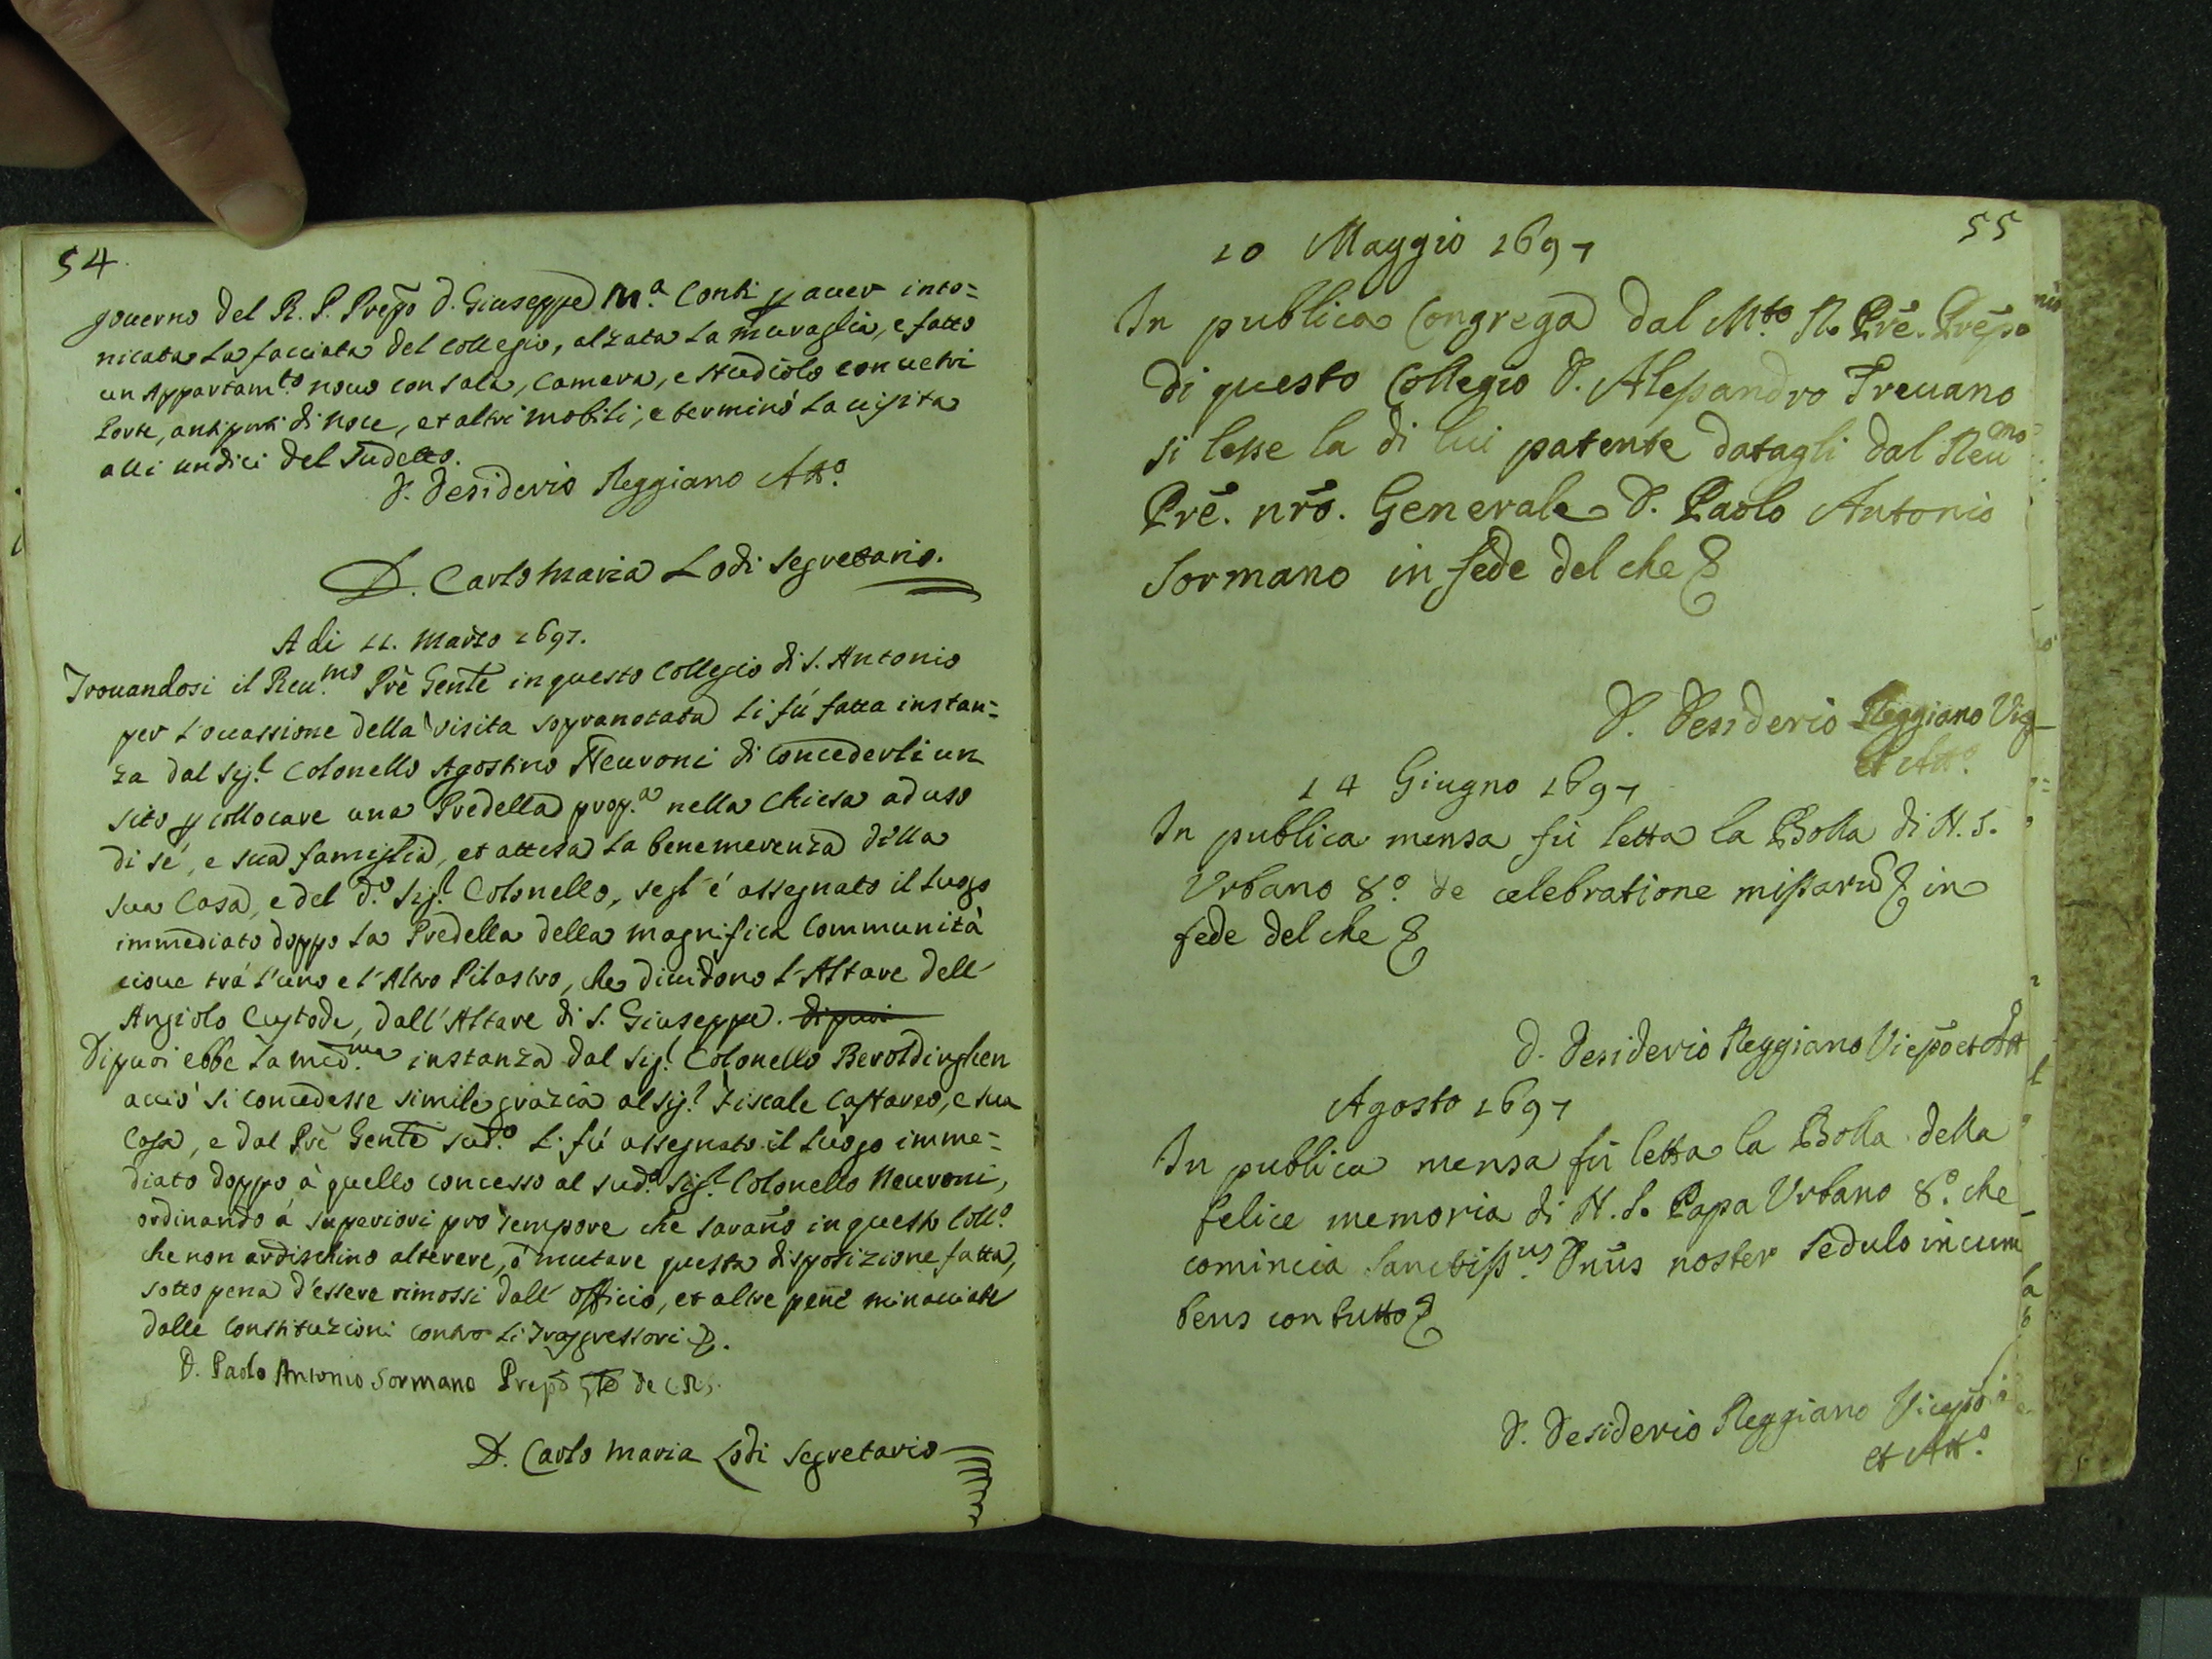 54
governo del R. P. Prepõ D. Giuseppe M.a Conti p aver into=
nicata la facciata del collegio, alzata la muraglia, e fatto
un Appartam.to novo con sala, Camera, e studiolo con vetri
Porte, antiporti di noce, et altri mobili; e terminò la visita
alli undici del sudetto.
D. Desiderio Reggiano Att.o
D. Carlo Maria Lodi Segretario.
A di 11. Marzo 1697.
Trovandosi il Reu.mo Prẽ Genle in questo Collegio di S. Antonio
per l'occassione della visita sopranotata li fù fatta instan=
za dal Sig.r Colonello Agostino Neuroni di concederli un
sito p collocare una Predella prop.a nella Chiesa ad uso
di sé, e sua famiglia, et attesa la benemerenza della
sua Casa, e del d.o Sig.r Colonello, segl'é assegnato il luogo
immediato doppo la Predella della magnifica Communità
cioue trá l'uno e l'Altro Pilastro, che dividono l'Altare dell'
Angiolo Custode, dall'Altare di S. Giuseppe. di puoi
Di puoi ebbe la med.ma instanza dal Sig.r Colonello Beroldinghen
acciò si concedesse simile grazia al sig.r Fiscale Castoreo, e sua
Casa, e dal Prẽ Genle sud.o li fú assegnato il luogo imme=
diato doppo à quello concesso al sud.o Sig.r Colonello Neuroni,
ordinando á superiori pro tempore che sarano in questo Coll.o
che non ardischino alterere, ó mutare questa disposizione fatta,
sotto pena d'essere rimossi dall'officio, et altre penẽ minacciate
dalle Constituzioni contro li Trasgressori &.
D. Paolo Antonio Sormano Prepõ Gle de C.R.S.
D. Carlo Maria Lodi Segretario
55
10 Maggio 1697
In publica Congrega dal M.to R. Prẽ. Prẽpo
di questo Collegio D. Alessandro Trevano
si lesse la di lui patente datagli dal Reu.mo
Prẽ. nrõ. Generale D. Paolo Antonio
Sormano in fede del che &
D. Desiderio Reggiano Vic
et Att.o
14 Giugno 1697
In publica mensa fù letta la Bolla di N. S.
Vrbano 8.o de celebratione missarũ & in
fede del che &
D. Desiderio Reggiano Vicepõ et Att
Agosto 1697
In publica mensa fù letta la Bolla della
felice memoria di N. S. Papa Vrbano 8.o che
comincia Sanctiss.us Dñus noster sedulo incum
bens con tutto &
D. Desiderio Reggiano Vicepõ
et Att.o